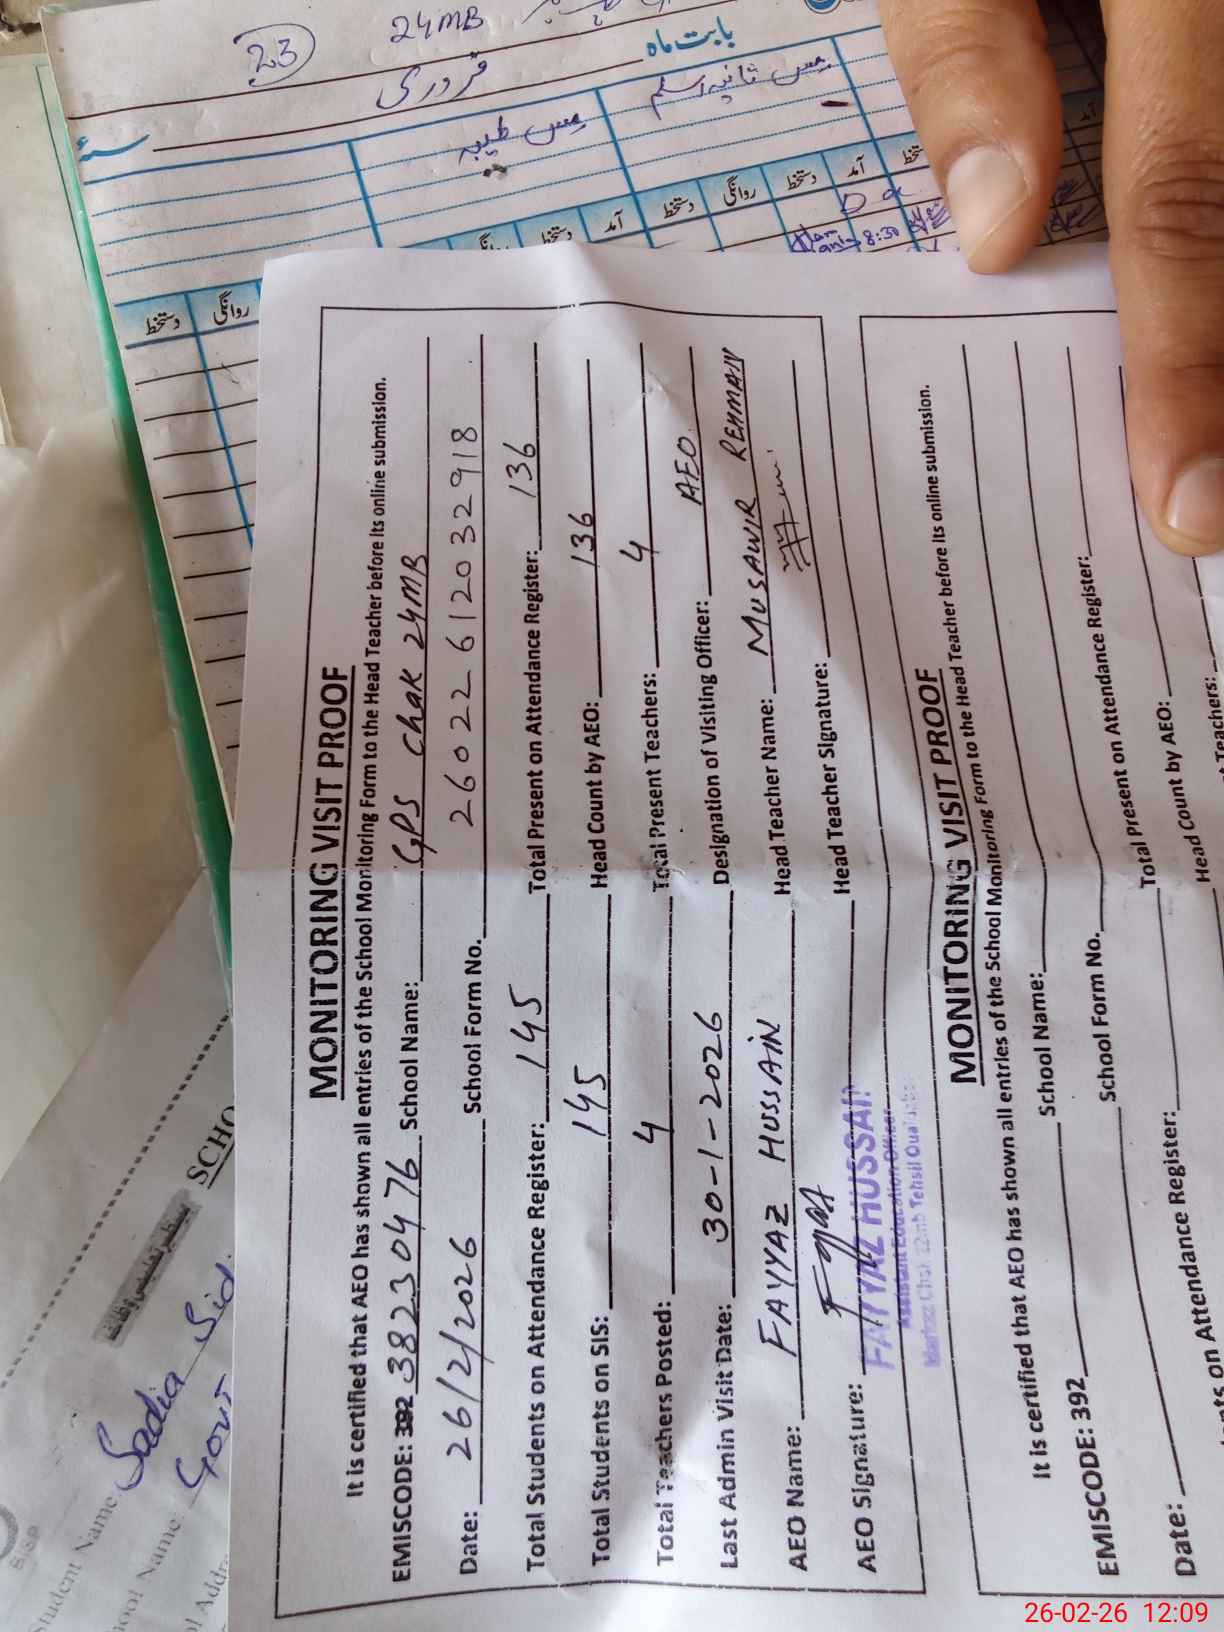 23
24MB
بابت ماہ
فروری
مس طیبہ
مس ثانیہ اسلم
دستخط روانگی
دستخط آمد دستخط روانگی دستخط آمد
8:30
MONITORING VISIT PROOF
It is certified that AEO has shown all entries of the School Monitoring Form to the Head Teacher before its online submission.
EMISCODE: 392 38230476 School Name: GPS Chak 24MB
Date: 26/2/2026 School Form No. 26022612032918
Total Students on Attendance Register: 145 Total Present on Attendance Register: 136
Total Students on SIS: 145 Head Count by AEO: 136
Total Teachers Posted: 4 Total Present Teachers: 4
Last Admin Visit Date: 30-1-2026 Designation of Visiting Officer: AEO
AEO Name: FAYYAZ HUSSAIN Head Teacher Name: MUSAWIR REHMAN
AEO Signature: Head Teacher Signature:
FAYYAZ HUSSAIN
Assistant Education Officer
Markaz Chak 22mb Tehsil
MONITORING VISIT PROOF
It is certified that AEO has shown all entries of the School Monitoring Form to the Head Teacher before its online submission.
EMISCODE: 392 School Name:
Date: School Form No.
on Attendance Register: Total Present on Attendance Register:
Head Count by AEO:
Teachers:
SCHO
BISP
Student Name Sadia Sid
School Name: Govt
Addr
26-02-26 12:09